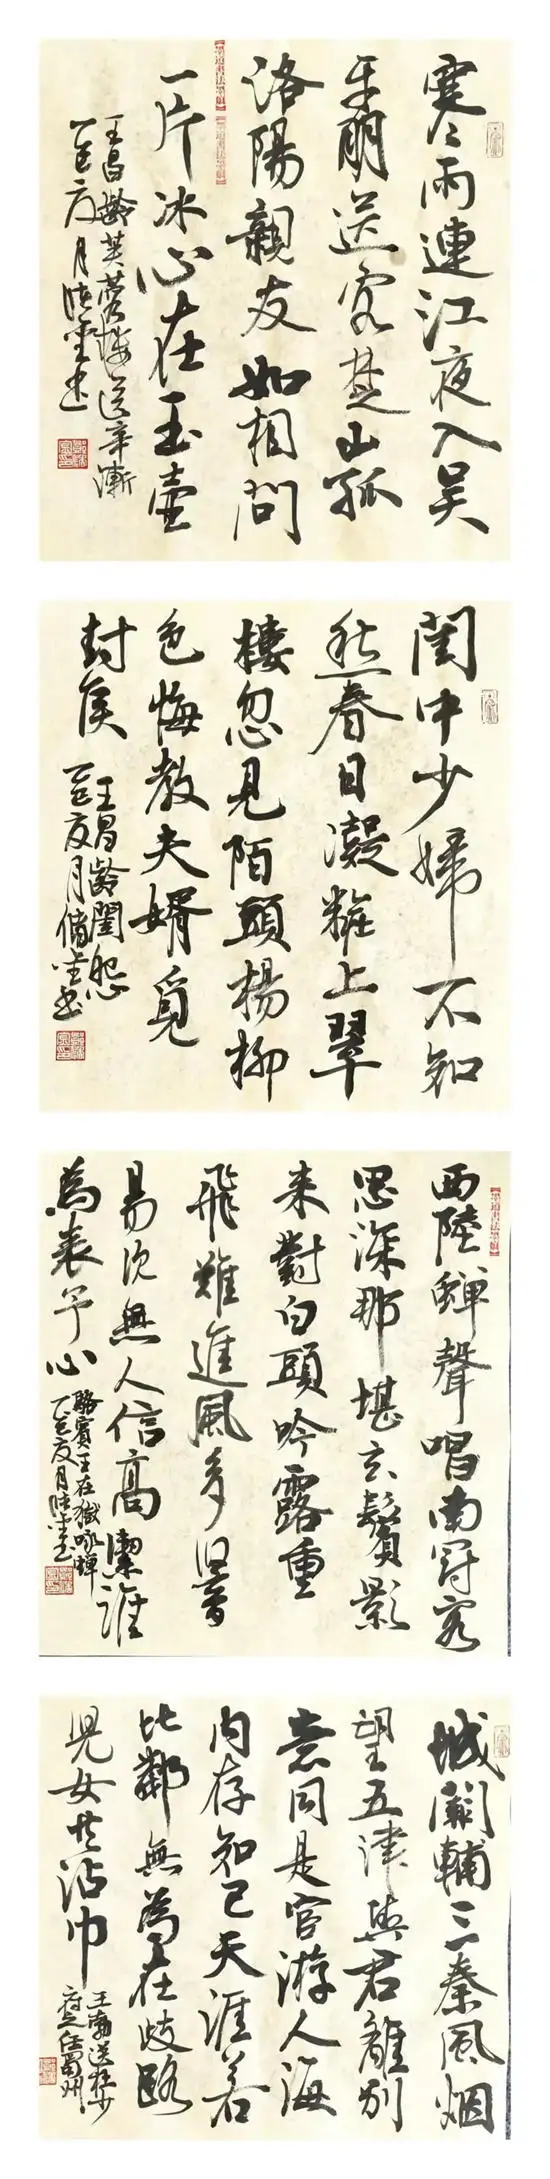 寒雨連江夜入吴
平明送客楚山孤
洛陽親友如相問
一片冰心在玉壺
王昌齡芙蓉楼送辛漸
乙巳夏月 書
閨中少婦不知
愁春日凝粧上翠
樓忽見陌頭楊柳
色悔教夫婿覓
封侯
王昌齡閨怨
乙巳夏月 書
西陸蟬聲唱南冠客
思深那堪玄鬢影
来對白頭吟露重
飛難進風多響
易沉無人信高潔誰
為表予心
駱賓王在獄咏蟬
乙巳夏月 書
城闕輔三秦風烟
望五津與君離别
意同是宦游人海
内存知己天涯若
比鄰無為在歧路
兒女共沾巾
王勃送杜少
府之任蜀州